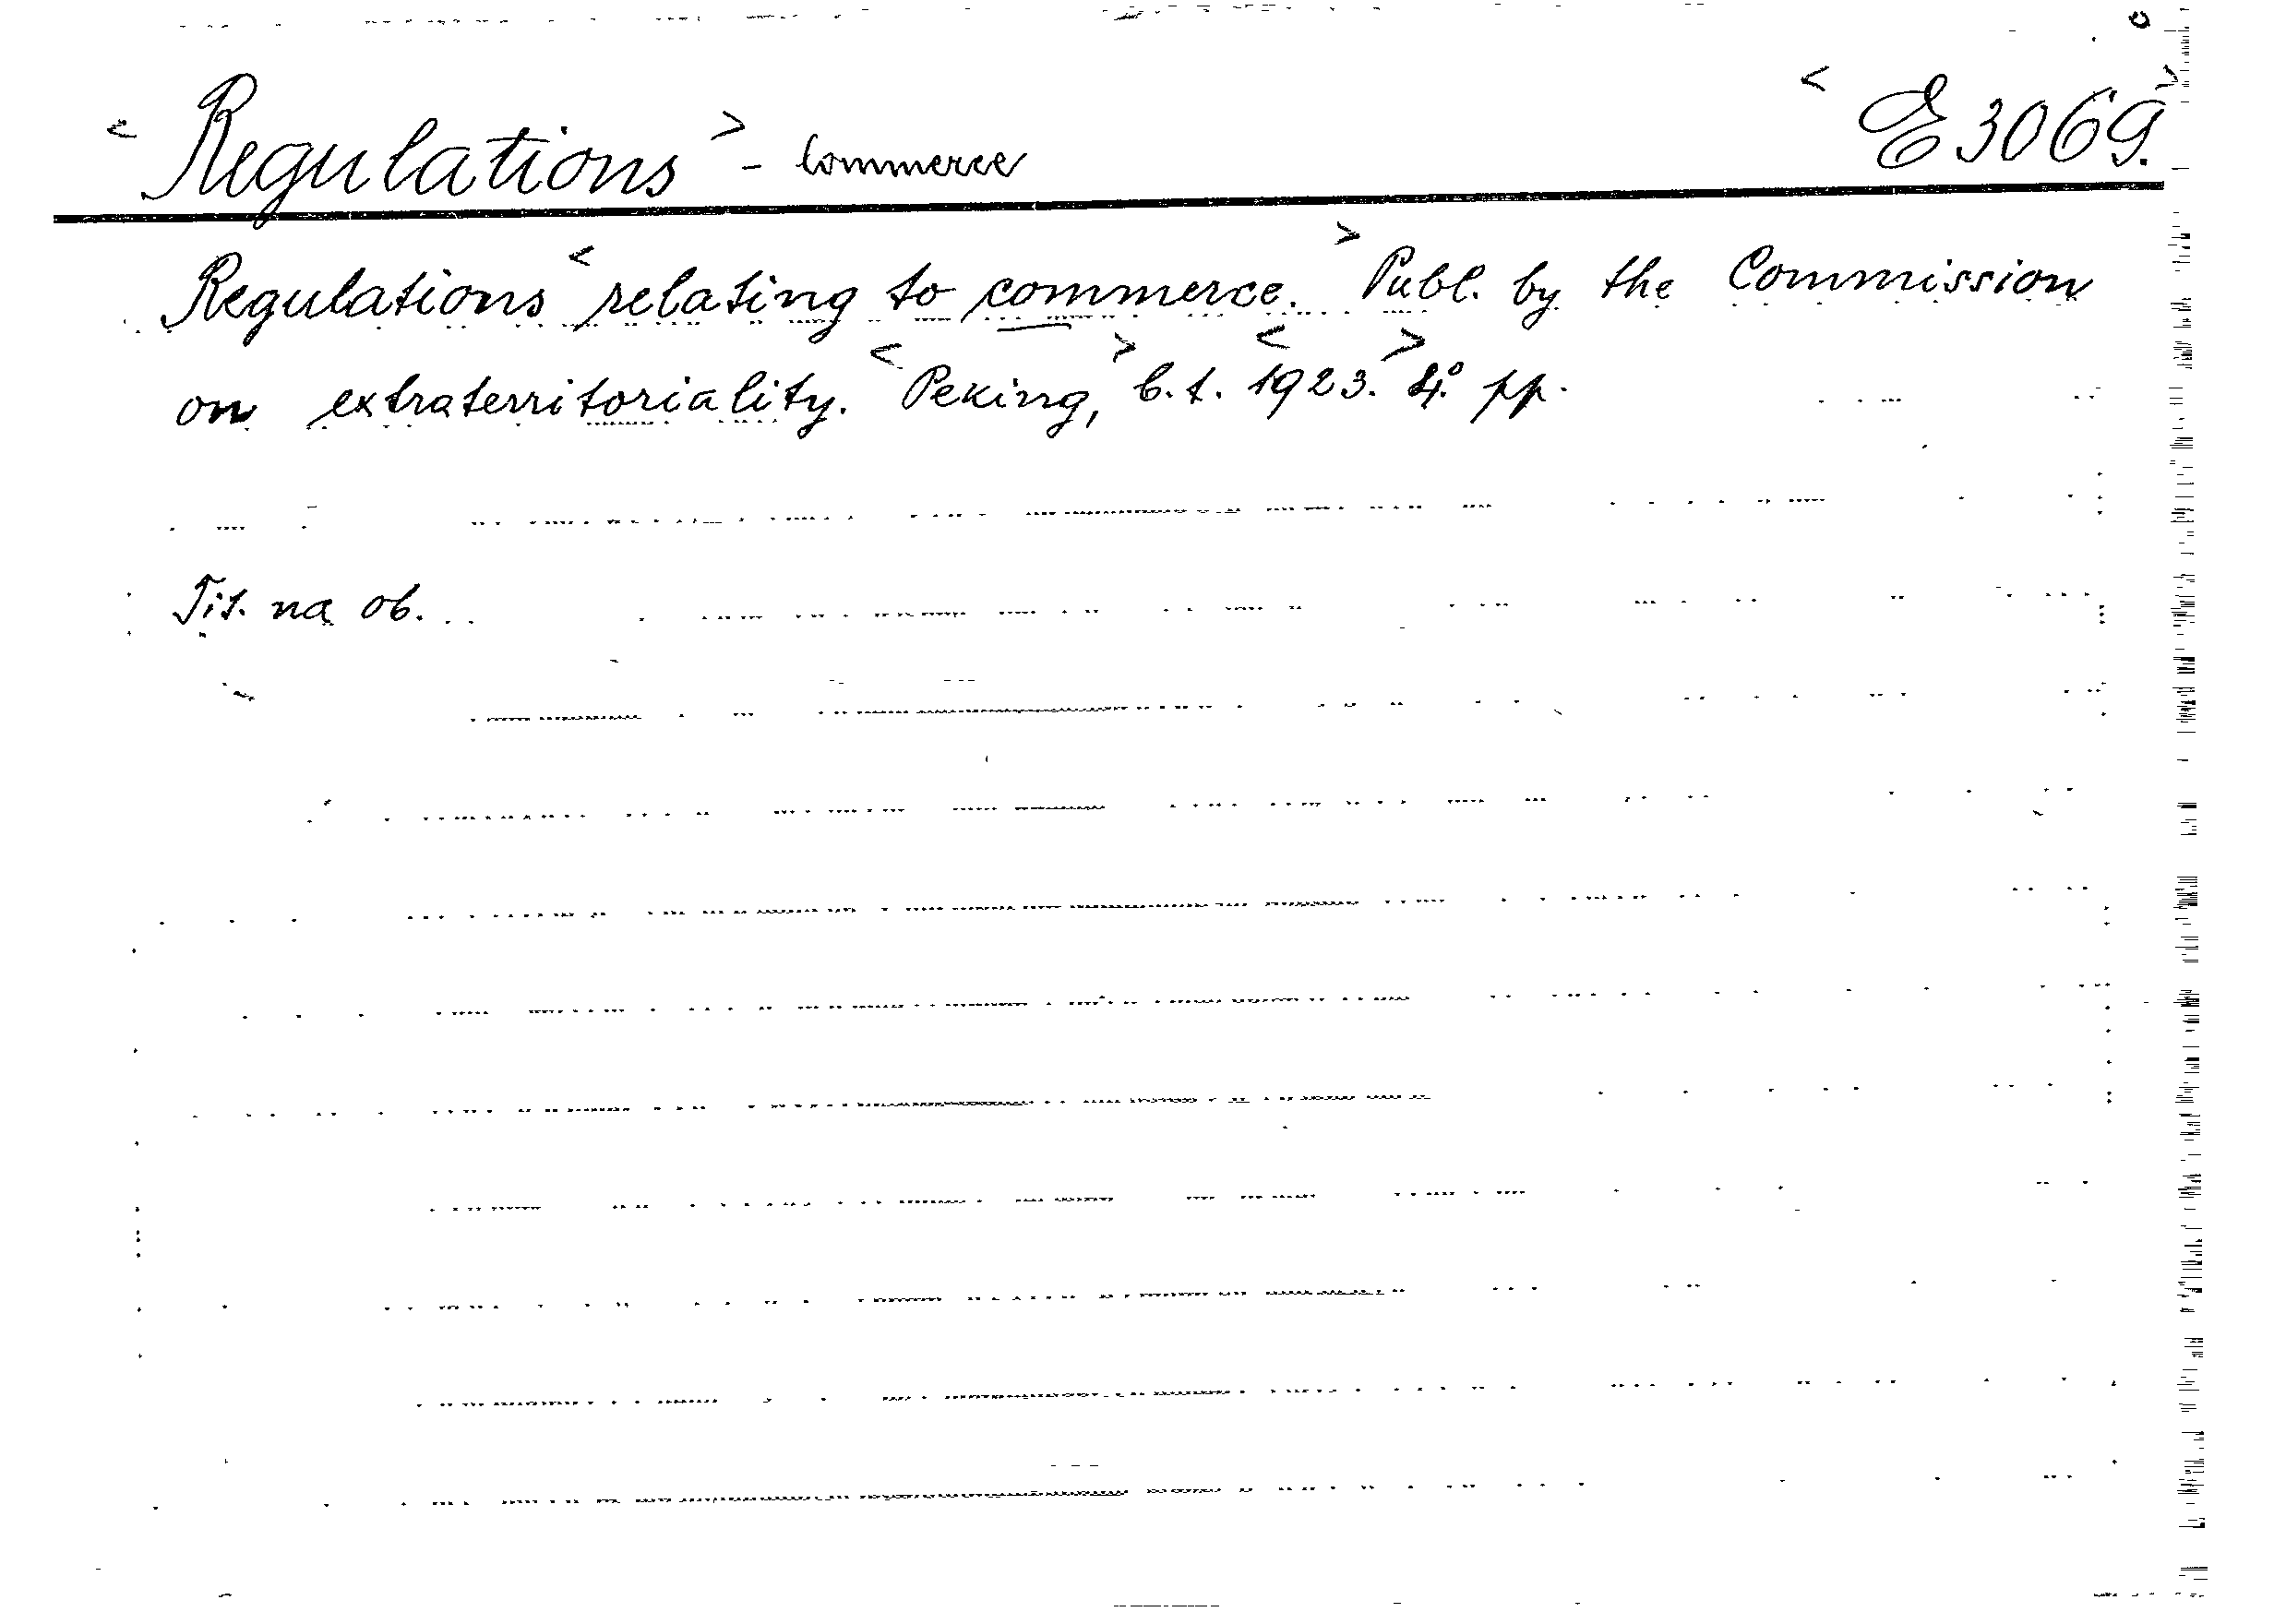 <Regulations> - Commerce <E 3069.>
Regulations <relating to commerce.> Publ. by the Commission
on extraterritoriality. <Peking,> b.t. <1923.> 4° pp.
Tit. na ob.